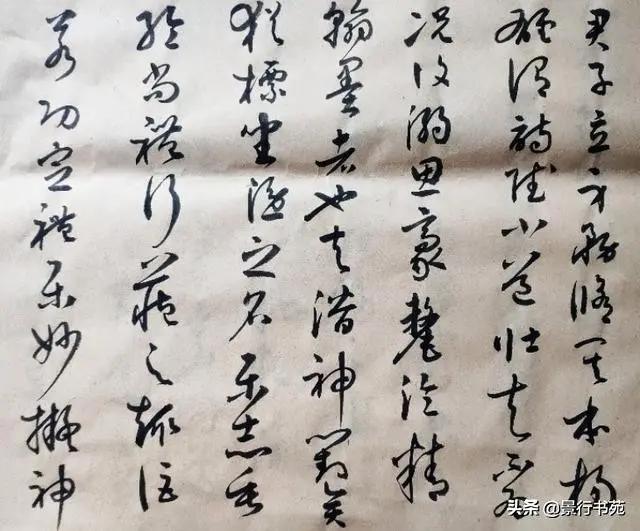 君子立身務脩其本楊
雄謂詩賦小道壯夫不為
況復溺思豪氂淪精
翰墨者也夫潛神對弈
猶標坐隱之名樂志垂
綸尚體行藏之趣詎
若功定禮樂妙擬神
头条 @景行书苑